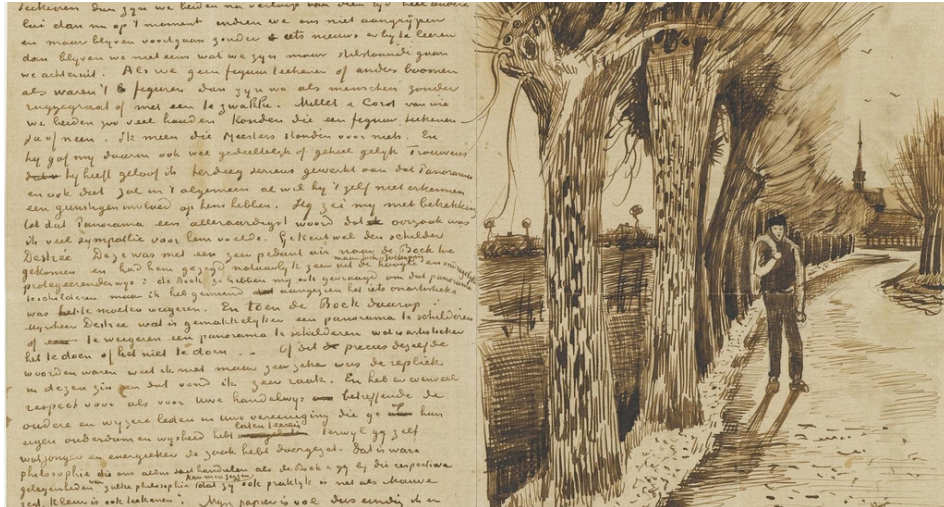 teekenen dan zyn we beiden na verloop van een tyd heel andere
lui dan nu op 't moment indien we ons niet aangrijpen
en maar blyven voortgaan zonder iets nieuws erby te leeren
dan blyven we niet eens wat we zyn maar stilstaande gaan
we achteruit. Als we geen figuur teekenen of anders boomen
als waren 't figuren dan zyn we als menschen zonder
ruggegraat of met een te zwakke. Millet & Corot van wie
we beiden zoo veel houden konden die een figuur teekenen
ja of neen. Ik meen die Meesters stonden voor niets. En
hy gaf my daarin ook wel gedeeltelyk of geheel gelyk Trouwens
hy heeft geloof ik terdeeg serieus gewerkt aan dat Panorama
en ook dat zal in 't algemeen al wil hy 't zelf niet erkennen
een gunstigen invloed op hem hebben. Hy zei my met betrekking
tot dat Panorama een alleraardigst woord dat oorzaak was
ik veel sympathie voor hem voelde. Ge kent wel den schilder
Destrée Deze was met een zeer pedant air naar de Bock toe
gekomen en had hem gezegd natuurlyk zeer uit de hoogte en
protegeerenderwys: de Bock ze hebben my ook gevraagd om dat panorama
te schilderen maar ik heb gemeend aangezien het iets onartistieks
was het te moeten weigeren. En toen de Bock daarop:
Mynheer Destrée wat is gemakkelyker een panorama te schilderen
of te weigeren een panorama te schilderen wat is artistieker
het te doen of het niet te doen. . Of dit precies dezelfde
woorden waren weet ik niet maar zeer zeker was de repliek
in dezen zin en dat vond ik zeer raak. En heb er evenveel
respect voor als voor uwe handelwys betreffende de
oudere en wyzere leden in uw vereeniging die ge hun
eigen ouderdom en wysheid hebt laten terwyl gy zelf
wat jonger en energieker de zaak hebt doorgezet. Dat is ware
philosophie die ons aldus doet handelen als de Bock & gy by die respectieve
gelegenheden van zulke philosophie kan men zeggen dat zy ook praktyk is net als Mauve
zegt „Kleuren is ook teekenen". Myn papier is vol dus eindig ik en